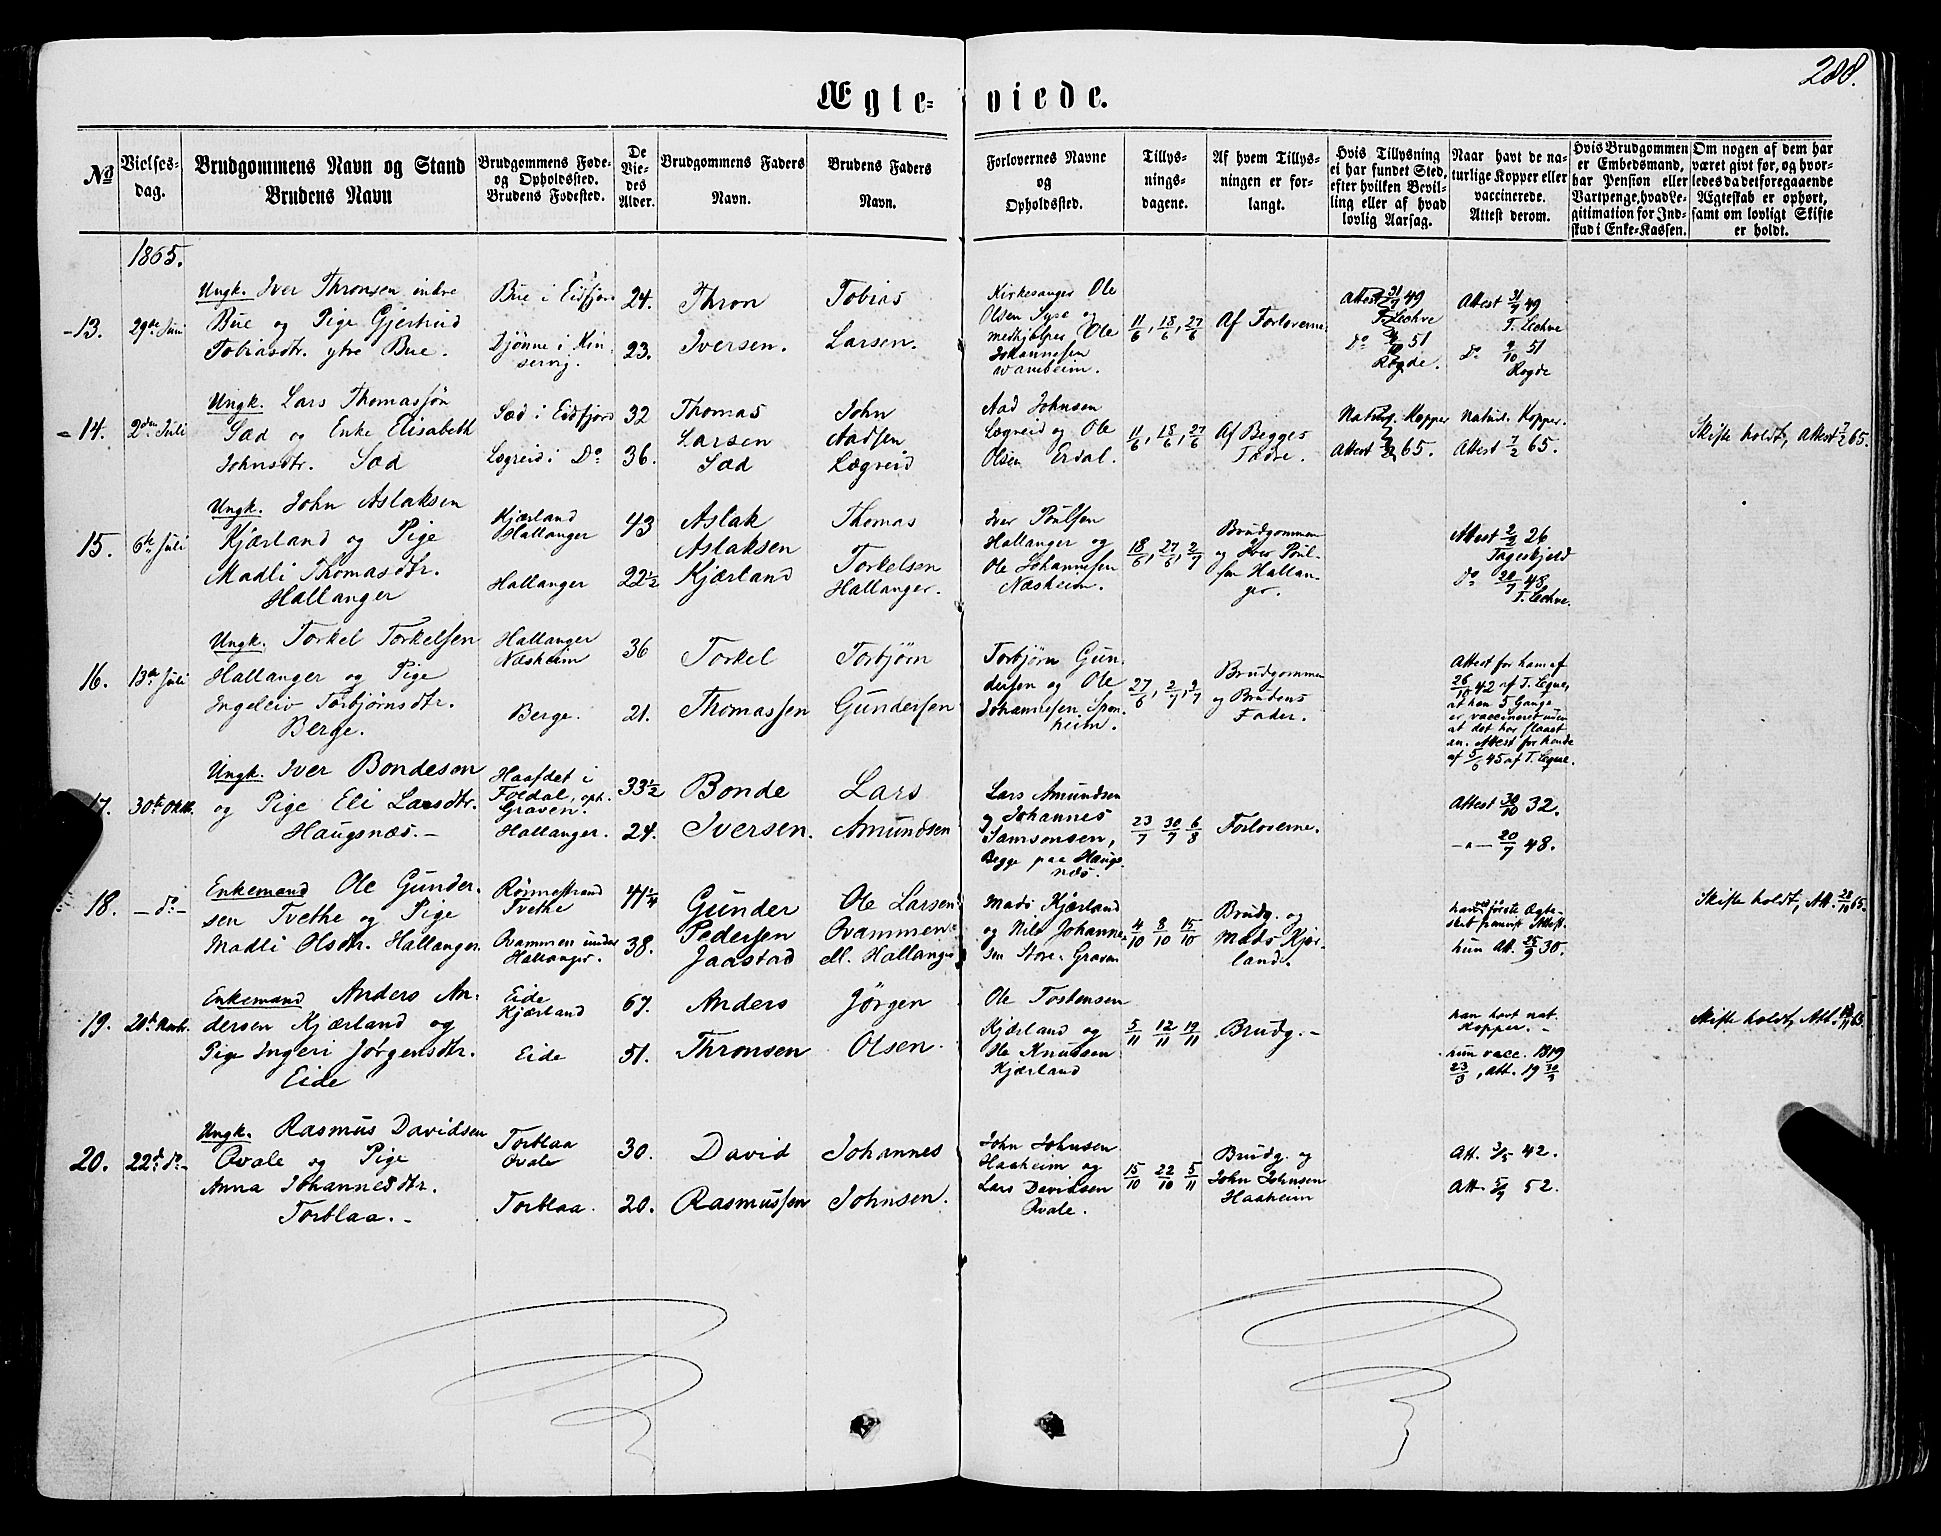 288.
Ægte- viede.
No
Vielses-
dag.
Brudgommens Navn og Stand
Brudens Navn
Brudgommens Føde-
og Opholdssted.
Brudens Fødested.
De
Vie-
des
Alder.
Brudgommens Faders
Navn.
Brudens Faders
Navn.
Forlovernes Navne
og
Opholdssted.
Tillys-
nings-
dagene.
Af hvem Tillys-
ningen er for-
langt.
Hvis Tillysning
ei har fundet Sted,
efter hvilken Bevil-
ling eller af hvad
lovlig Aarsag.
Naar havt de na-
turlige Kopper eller
vaccinerede.
Attest derom.
Hvis Brudgommen
er Embedsmand,
har Pension eller
Vartpenge, hvad Le-
gitimation for Ind-
skud i Enke-Kassen.
Om nogen af dem har
været givt før, og hvor-
ledes da det foregaaende
Ægteskab er ophørt,
samt om lovligt Skifte
er holdt.
1865.
13.
29de Juni
Ungk. Iver Thronsen indre
Bue og Pige Gjertrud
Tobiasdtr. ytre Bue.
Bue i Eidfjord
Djönne i Kin-
servig.
24.
23.
Thron
Iversen.
Tobias
Larsen.
Kirkesanger Ole
Olsen Syse og
medhjelper Ole
Johannesen
Vambheim.
11/6, 18/6, 27/6
Af Forloverne.
Attest 31/7 49
T. Lechve
Do 9/10 51
Rogde.
Attest 31/7 49
T. Lechve
Do 9/10 51
Rogde
14.
2den Juli
Ungk. Lars Thomassøn
Sæd og Enke Elisabeth
Johnsdtr. Sæd
Sæd i Eidfjord
Lægreid i Do
32
36.
Thomas
Larsen
Sæd
John
Aadsen
Lægreid
Aad Johnsen
Lægreid og Ole
Olsen Erdal.
11/6, 18/6, 27/6
Af Begges
Fædre.
Naturl. Kopper
Attest 7/2 65.
Naturl. Kopper.
Attest 7/2 65.
Skifte holdt, Attest 7/2 65.
15.
6te Juli
Ungk. John Aslaksen
Kjærland og Pige
Madli Thomasdtr.
Hallanger
Kjærland
Hallanger
Hallanger
43
22½
Aslak
Aslaksen
Kjærland
Thomas
Torkelsen
Hallanger.
Iver Poulsen
Hallanger og
Ole Johannesen
Næsheim.
18/6, 27/6, 2/7
Brudgommen
og Iver Poul-
sen Hallan-
ger.
Attest 2/3 26
do 20/7 48
T. Lechve.
16.
13de Juli
Ungk. Torkel Torkelsen
Hallanger og Pige
Ingeleiv Torbjørnsdtr.
Berge.
Hallanger
Næsheim
Berge.
36
21.
Torkel
Thomassen
Torbjørn
Gundersen
Torbjörn Gun-
dersen og Ole
Johannesen Spon-
heim.
27/6, 2/7, 9/7
Brudgommen
og Brudens
Fader.
Attest for ham af
26/10 42 af T. Legne,
at han 5 Gange
er vaccineret uden
at det har slaaet
an. Attest for hende
af 5/6 45 af T. Legne.
17.
30te Oktb.
Ungk. Iver Bondesen
og Pige Eli Larsdtr.
Haugsnæs.-
Haafdet i
Foldal, oph.
Graven.
Hallanger.
33½
24.
Bonde
Iversen.
Lars
Amundsen
Lars Amundsen
og Johannes
Samsonsen,
Begge paa Haugs-
næs.
23/7 30/7 6/8
Forloverne.
Attest 30/10 32.
-"- 20/7 48.
18.
-do-
Enkemand Ole Gunder-
sen Tvethe og Pige
Madli Olsdtr. Hallanger.
Rönnestrand
Tvethe
Qvammen under
Hallanger.
41¼
38.
Gunder
Pedersen
Jaastad
Ole Larsen
Qvammen
ell. Hallanger
Mads Kjærland
og Nils Johanne-
sen Store-Graven
4/10 8/10 15/10
Brudg. og
Mads Kjær-
land.
han ved første Ægte-
skab fremvist Attest.
hun Att. 25/9 30.
Skifte holdt, Att. 28/10 65.
19.
20de Novbr.
Enkemand Anders An-
dersen Kjærland og
Pige Ingeri Jørgensdtr.
Eide
Eide
Kjærland
Eide
67.
51.
Anders
Thronsen
Jørgen
Olsen.
Ole Tostensen
Kjærland og
Ole Knudsen
Kjærland
5/11 12/11 19/11
Brudg.-
han havt nat.
Kopper.-
hun vacc. 1819
23/3, Att. 19 30/3
Skifte holdt, Att.
20.
22de do-
Ungk. Rasmus Davidsen
Qvale og Pige
Anna Johannesdtr.
Torblaa.-
Torblaa
Qvale
Torblaa.
30.
20.
David
Rasmussen
Johannes
Johnsen.
John Johnsen
Haaheim og
Lars Davidsen
Qvale.
15/10 22/10 5/11
Brudg. og
John Johnsen
Haaheim
Att. 3/5 42.
Att. 5/9 52.